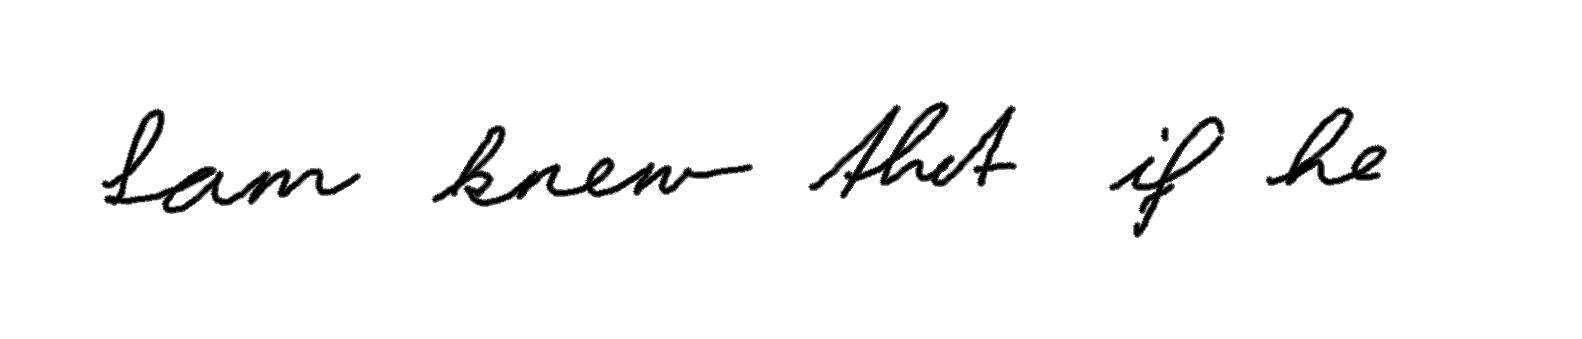 Sam knew that if he